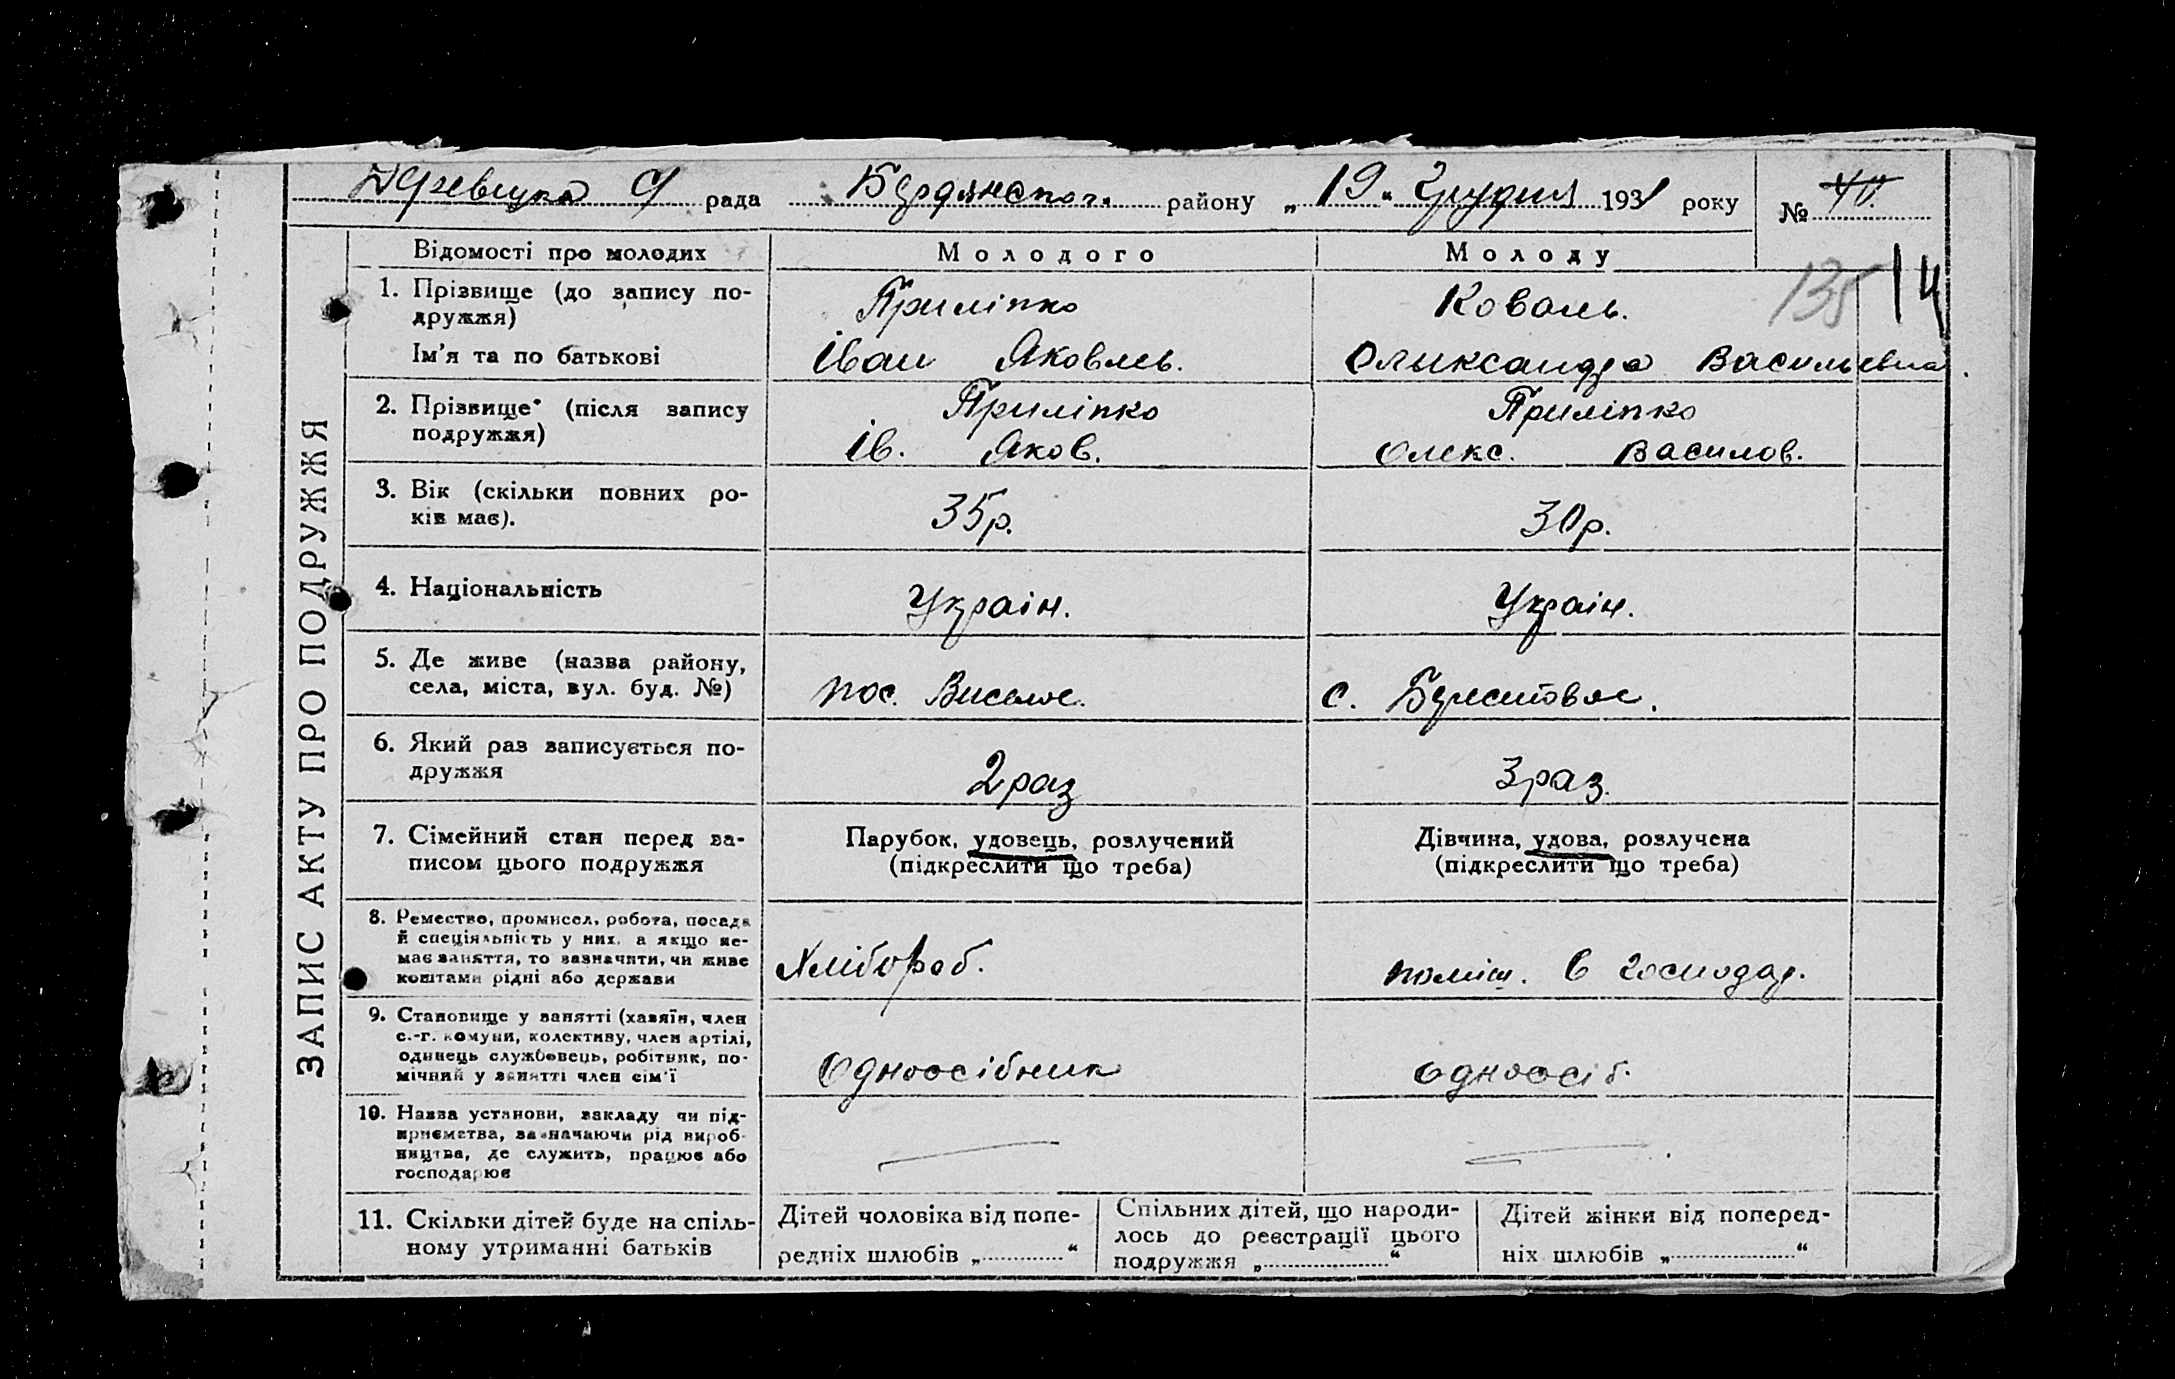 рада Бердянског. району „19“ Грудня 1931 року № 40.
ЗАПИС АКТУ ПРО ПОДРУЖЖЯ
Відомості про молодих
Молодого
Молоду
135 14
1. Прізвище (до запису по-
дружжя)
Приліпко
Коваль.
Ім'я та по батькові
Іван Яковль.
Олександра Васильевна.
2. Прізвище (після запису
подружжя)
Приліпко
Ів. Яков.
Приліпко
Олекс. Василов.
3. Вік (скільки повних ро-
ків має).
35р.
30р.
4. Національність
Україн.
Україн.
5. Де живе (назва району,
села, міста, вул. буд. №)
пос. Виселое.
с. Берестовое.
6. Який раз записується по-
дружжя
2 раз
3 раз.
7. Сімейний стан перед за-
писом цього подружжя
Парубок, удовець, розлучений
(підкреслити що треба)
Дівчина, удова, розлучена
(підкреслити що треба)
8. Ремество, промисел, робота, посада
й спеціяльність у них, а якщо не-
має заняття, то зазначити, чи живе
коштами рідні або держави
Хлібороб.
поміш. в господар.
9. Становище у занятті (хазяїн, член
с.-г. комуни, колективу, член артілі,
одинець службовець, робітник, по-
мічний у занятті член сім'ї
Одноосібник
Одноосіб.
10. Назва установи, закладу чи під-
приємства, зазначаючи рід вироб-
ництва, де служить, працює або
господарює
11. Скільки дітей буде на спіль-
ному утриманні батьків
Дітей чоловіка від попе-
редніх шлюбів „............“
Спільних дітей, що народи-
лось до реєстрації цього
подружжя „..................“
Дітей жінки від поперед-
ніх шлюбів „..................“